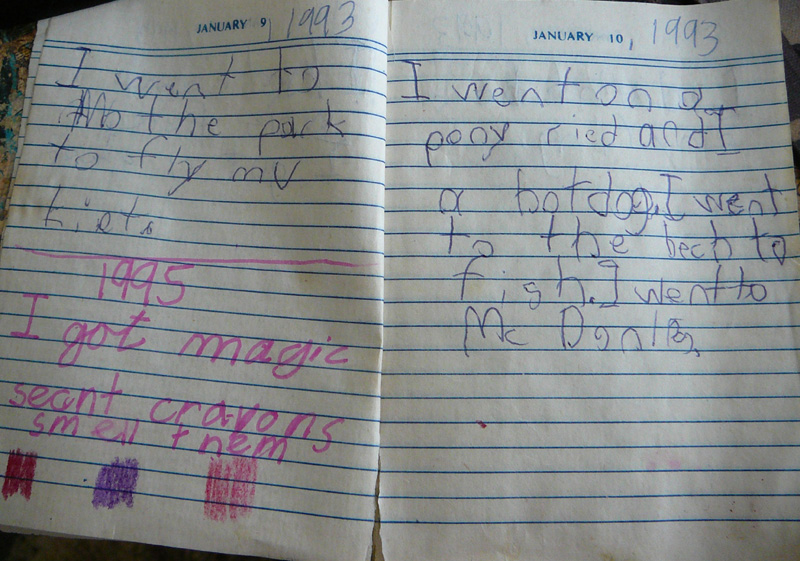 JANUARY 9, 1993
I went to
the park
to fly my
kiets
1995
I got magic
secnt crayons
smell them
JANUARY 10, 1993
I went on a
pony ried and I
a hotdog. I went
to the bech to
fish. I went to
Mc Donlds